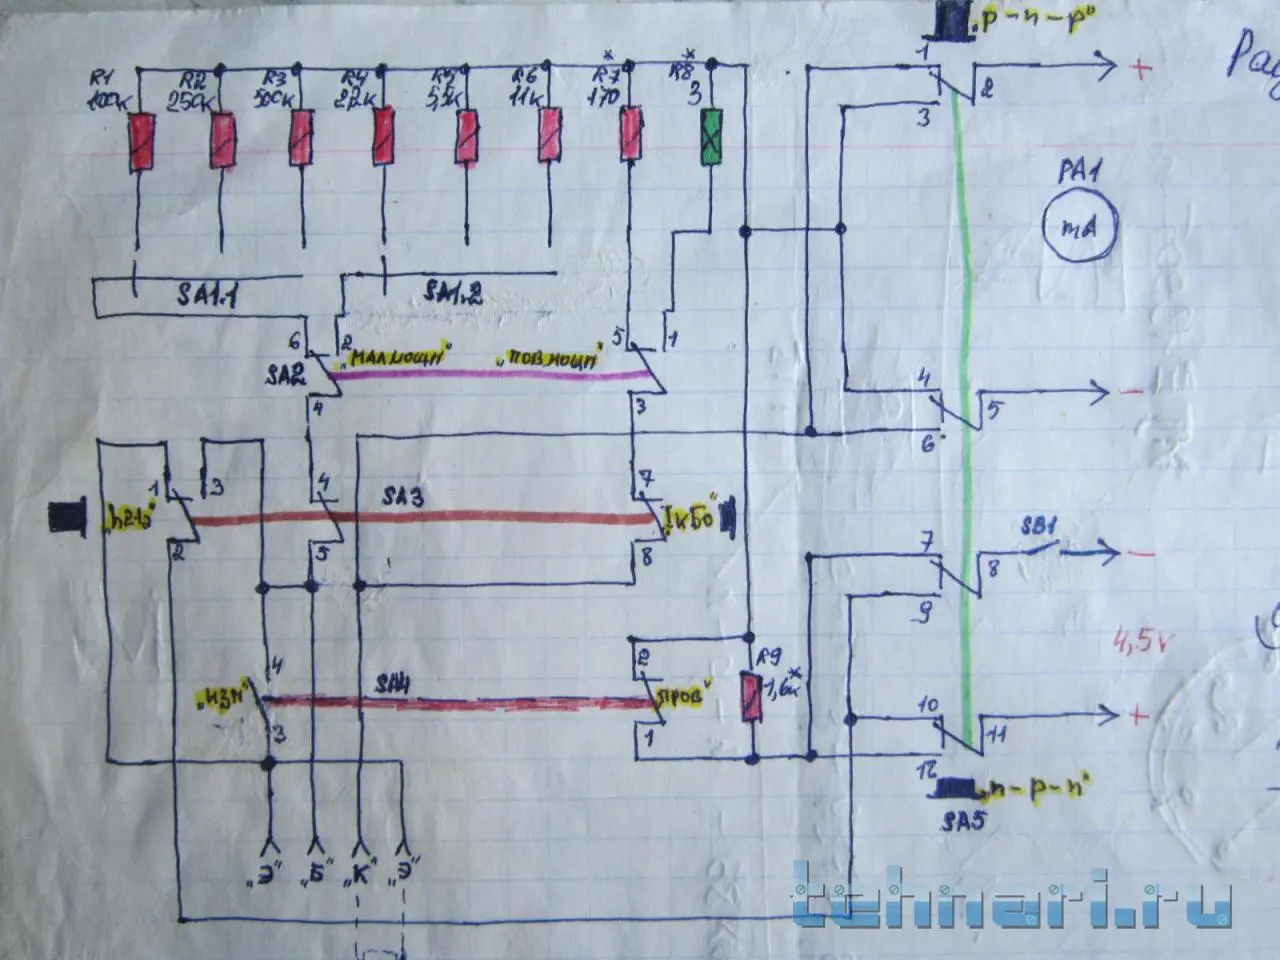 „p-n-p"
R1
100к
R2
250к
R3
500к
R4
2,2к
R5
5,5к
R6
11к
*
R7
170
*
R8
3
1
2
3
+
Рад
PA1
mA
SA1.1
SA1.2
6
2
5
1
SA2
„МАЛ МОЩН"
„ПОВ МОЩН"
4
3
4
5
6
-
1
3
4
SA3
7
„h21э"
„IкБо"
2
5
8
7
8
9
SB1
-
4,5v
4
SA4
2
R9
*
1,6к
„ИЗМ"
„ПРОВ"
3
1
10
11
12
+
„n-p-n"
SA5
„Э"
„Б"
„К"
„Э"
tehnari.ru